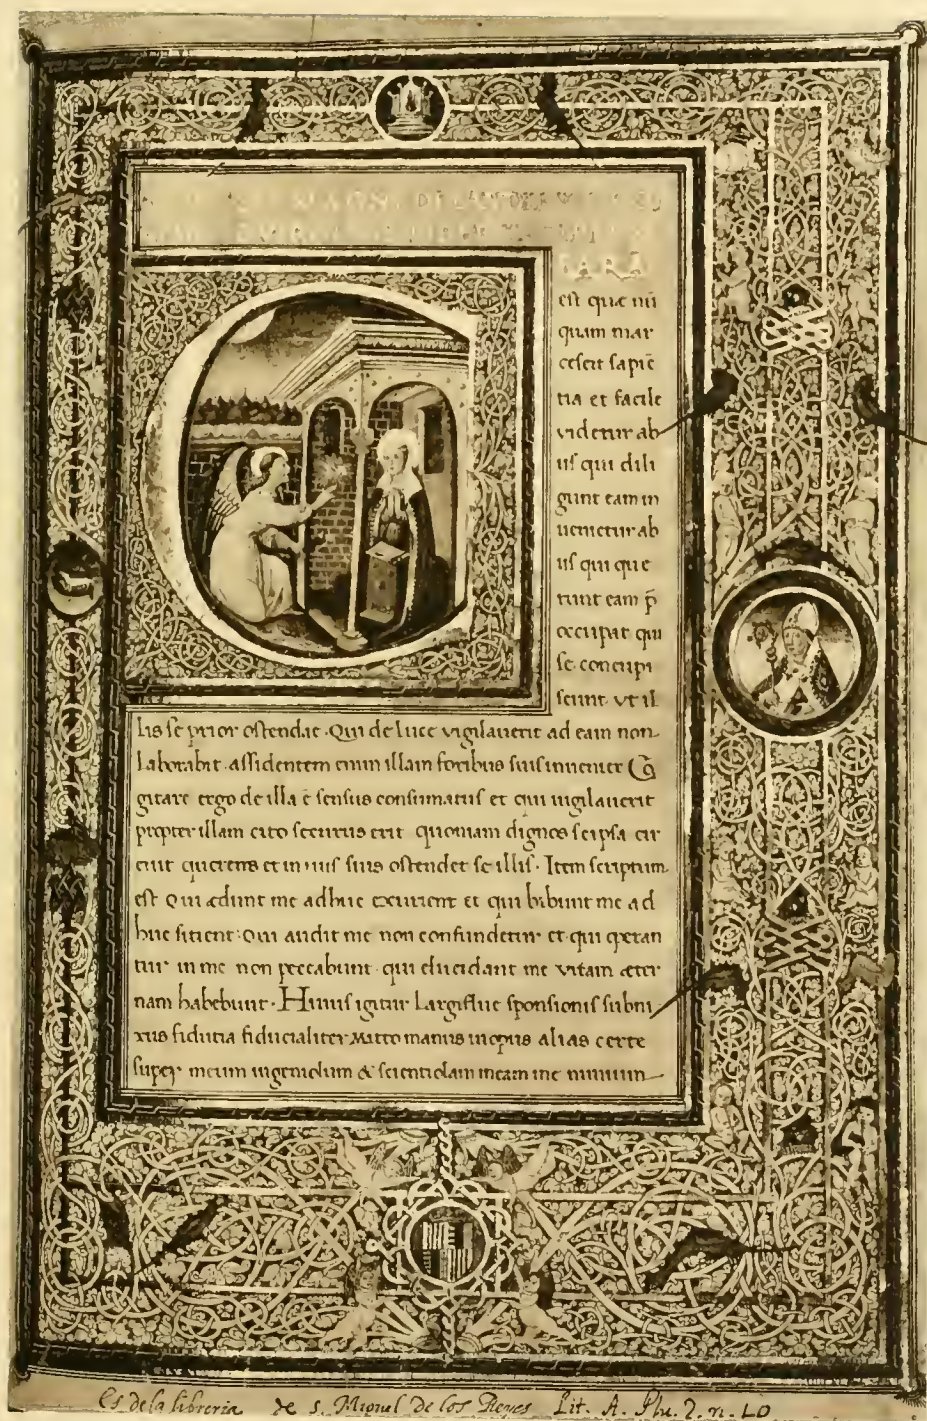 MAGNI DE LAUDIBUS
C
est quæ nū
quam mar
cescit sapiē
tia et facile
videtur ab
iis qui dili
gunt eam in
uenietur ab
iis qui que
runt eam p̄
occupat qui
se concupi
scunt vt il
lis se prior ostendat. Qui de luce vigilauerit ad eam non
laborabit. assidentem enim illam foribus suis inueniet Co
gitare ergo de illa ē sensus consumatus et qui uigilauerit
propter illam cito securus erit quoniam dignos se ipsa cir
cuit querens et in uiis suis ostendet se illis. Item scriptum
est Qui ædunt me adhuc exurient et qui bibunt me ad
huc sitient: Qui audit me non confundetur et qui operan
tur in me non peccabunt. qui elucidant me vitam æter
nam habebunt. Huius igitur largiflue sponsionis subni
xus fidutia fiducialiter mitto manus in opus alias certe
super meum ingeniolum & scientiolam meam me nimium
Es de la libreria de s. Miguel De los Reyes Lit. A. Plu. 2. n. 10